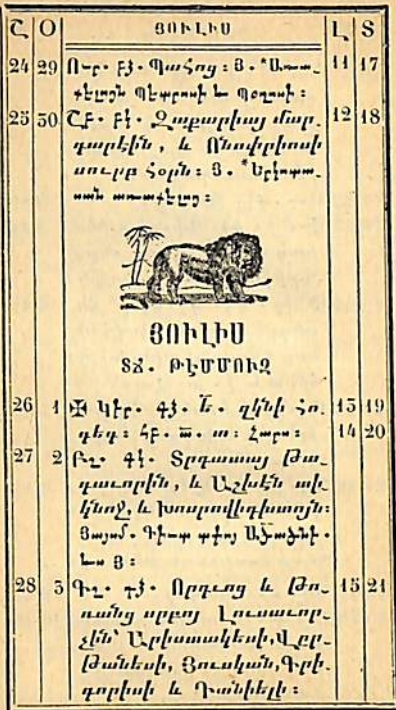 Շ Օ ՅՈՒԼԻՍ Լ Տ
24 29 Ուր. բձ. Պահոց : Յ. *Առա- 11 17
քելոցն Պետրոսի և Պօղոսի :
25 30 Շբ. բկ. Զաքարիայ մար- 12 18
գարէին, և Ոնոփրիոսի
սուրբ հօրն : Յ. *Երկոտա-
սան առաքելոց :
ՅՈՒԼԻՍ
ՏՃ. ԹԷՄՄՈՒԶ
26 1 ✠ Կիր. գձ. Ե. զկնի Հո- 13 19
գեգ : Հբ. Հարս : 14 20
27 2 Բշ. գկ. Տրդատայ Թա-
գաւորին, և Աշխէն տի-
կնոջ, և Խոսրովիդխտոյն :
Յայսմ. Գիւտ տփոյ Աշածնի.
Նաև Յ :
28 3 Գշ. դձ. Որդւոց և Թո- 15 21
ռանց սրբոյ Լուսաւոր-
չին՝ Արիստակեսի, Վըր-
Թանեսի, Յուսկան, Գրի-
գորիսի և Դանիէլի :